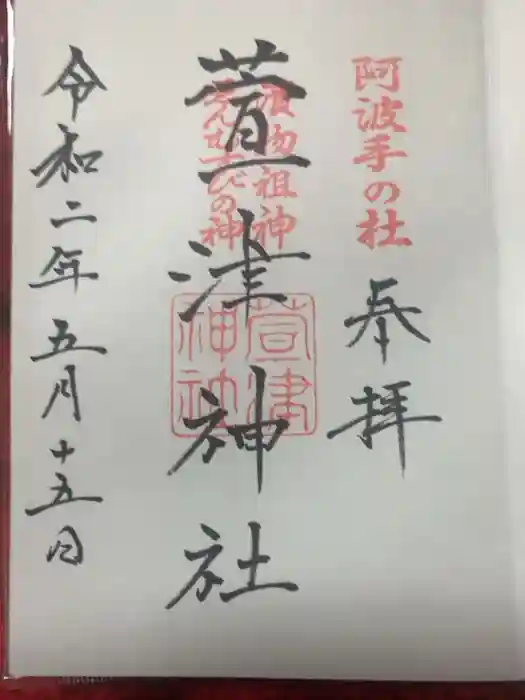 阿波手の杜
奉拝
漬物祖神
えんむすびの神
萱津神社
萱津
神社
令和二年五月十五日